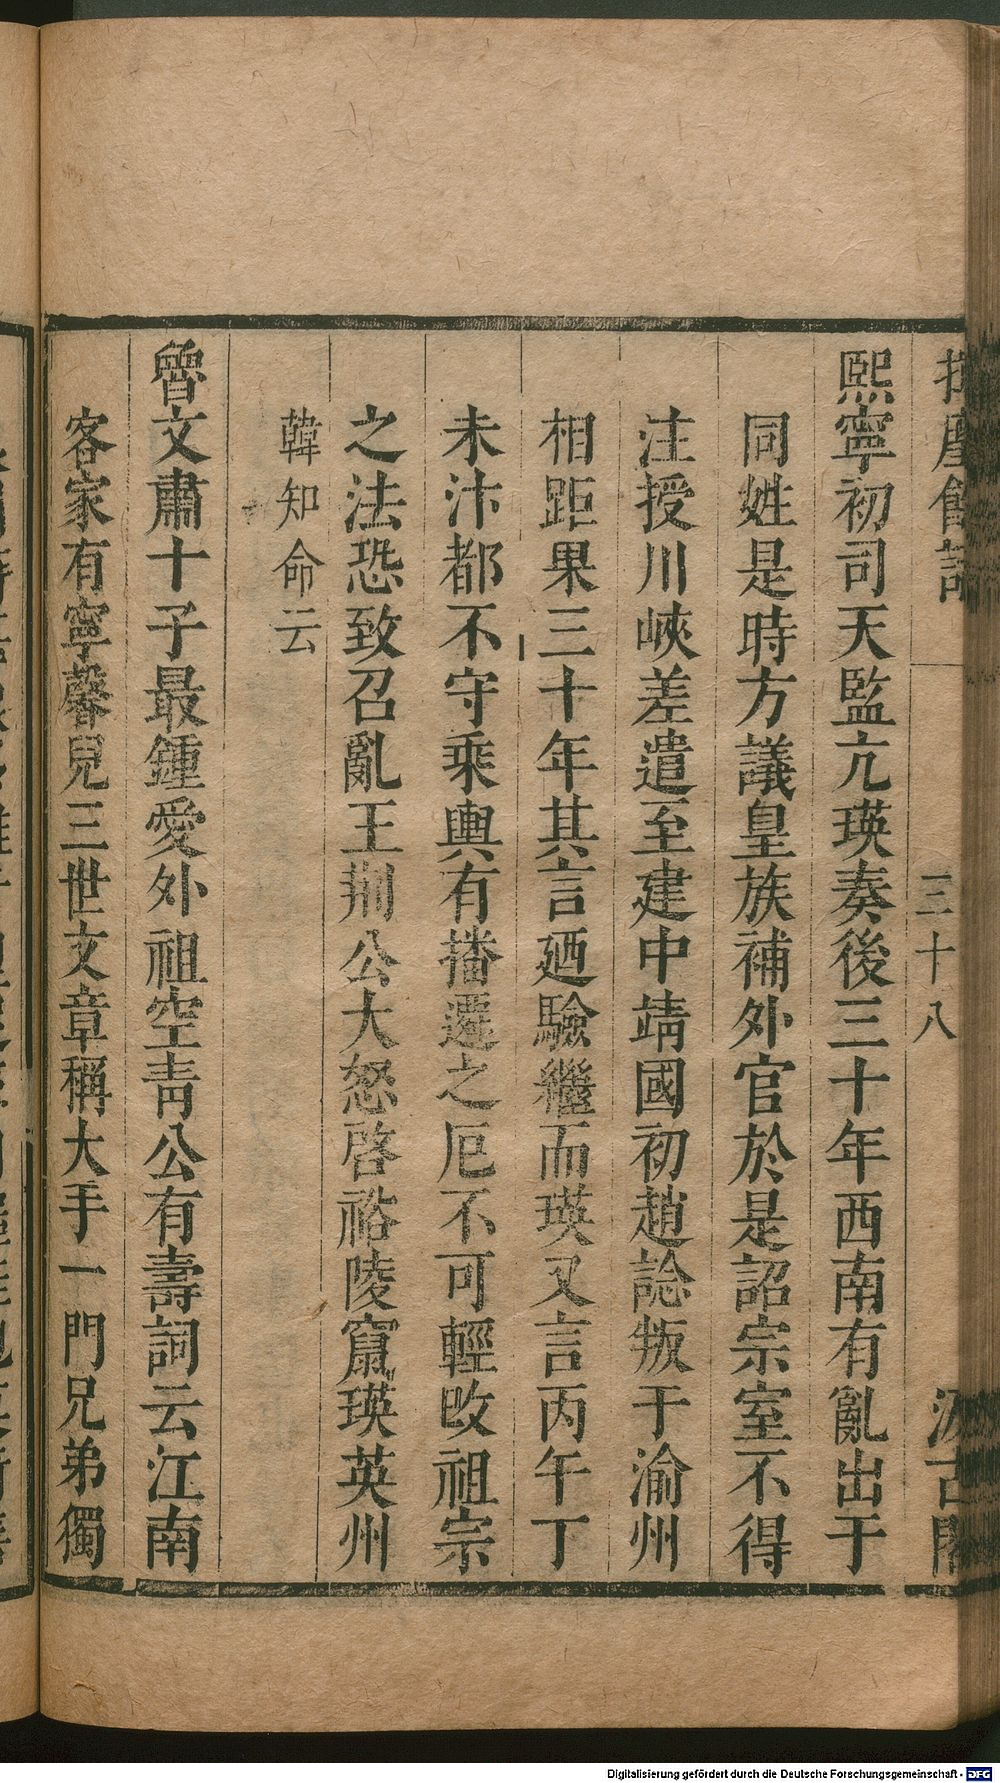 揮麈餘話
三十八
汲古閣
熙寧初司天監亢瑛奏後三十年西南有亂出于
同姓是時方議皇族補外官於是詔宗室不得
注授川峽差遣至建中靖國初趙諗叛于渝州
相距果三十年其言廼驗繼而瑛又言丙午丁
未汴都不守乘輿有播遷之厄不可輕改祖宗
之法恐致召亂王荊公大怒啓裕陵竄瑛英州
韓知命云
曾文肅十子最鍾愛外祖空青公有壽詞云江南
客家有寧馨兒三世文章稱大手一門兄弟獨
Digitalisierung gefördert durch die Deutsche Forschungsgemeinschaft - DFG